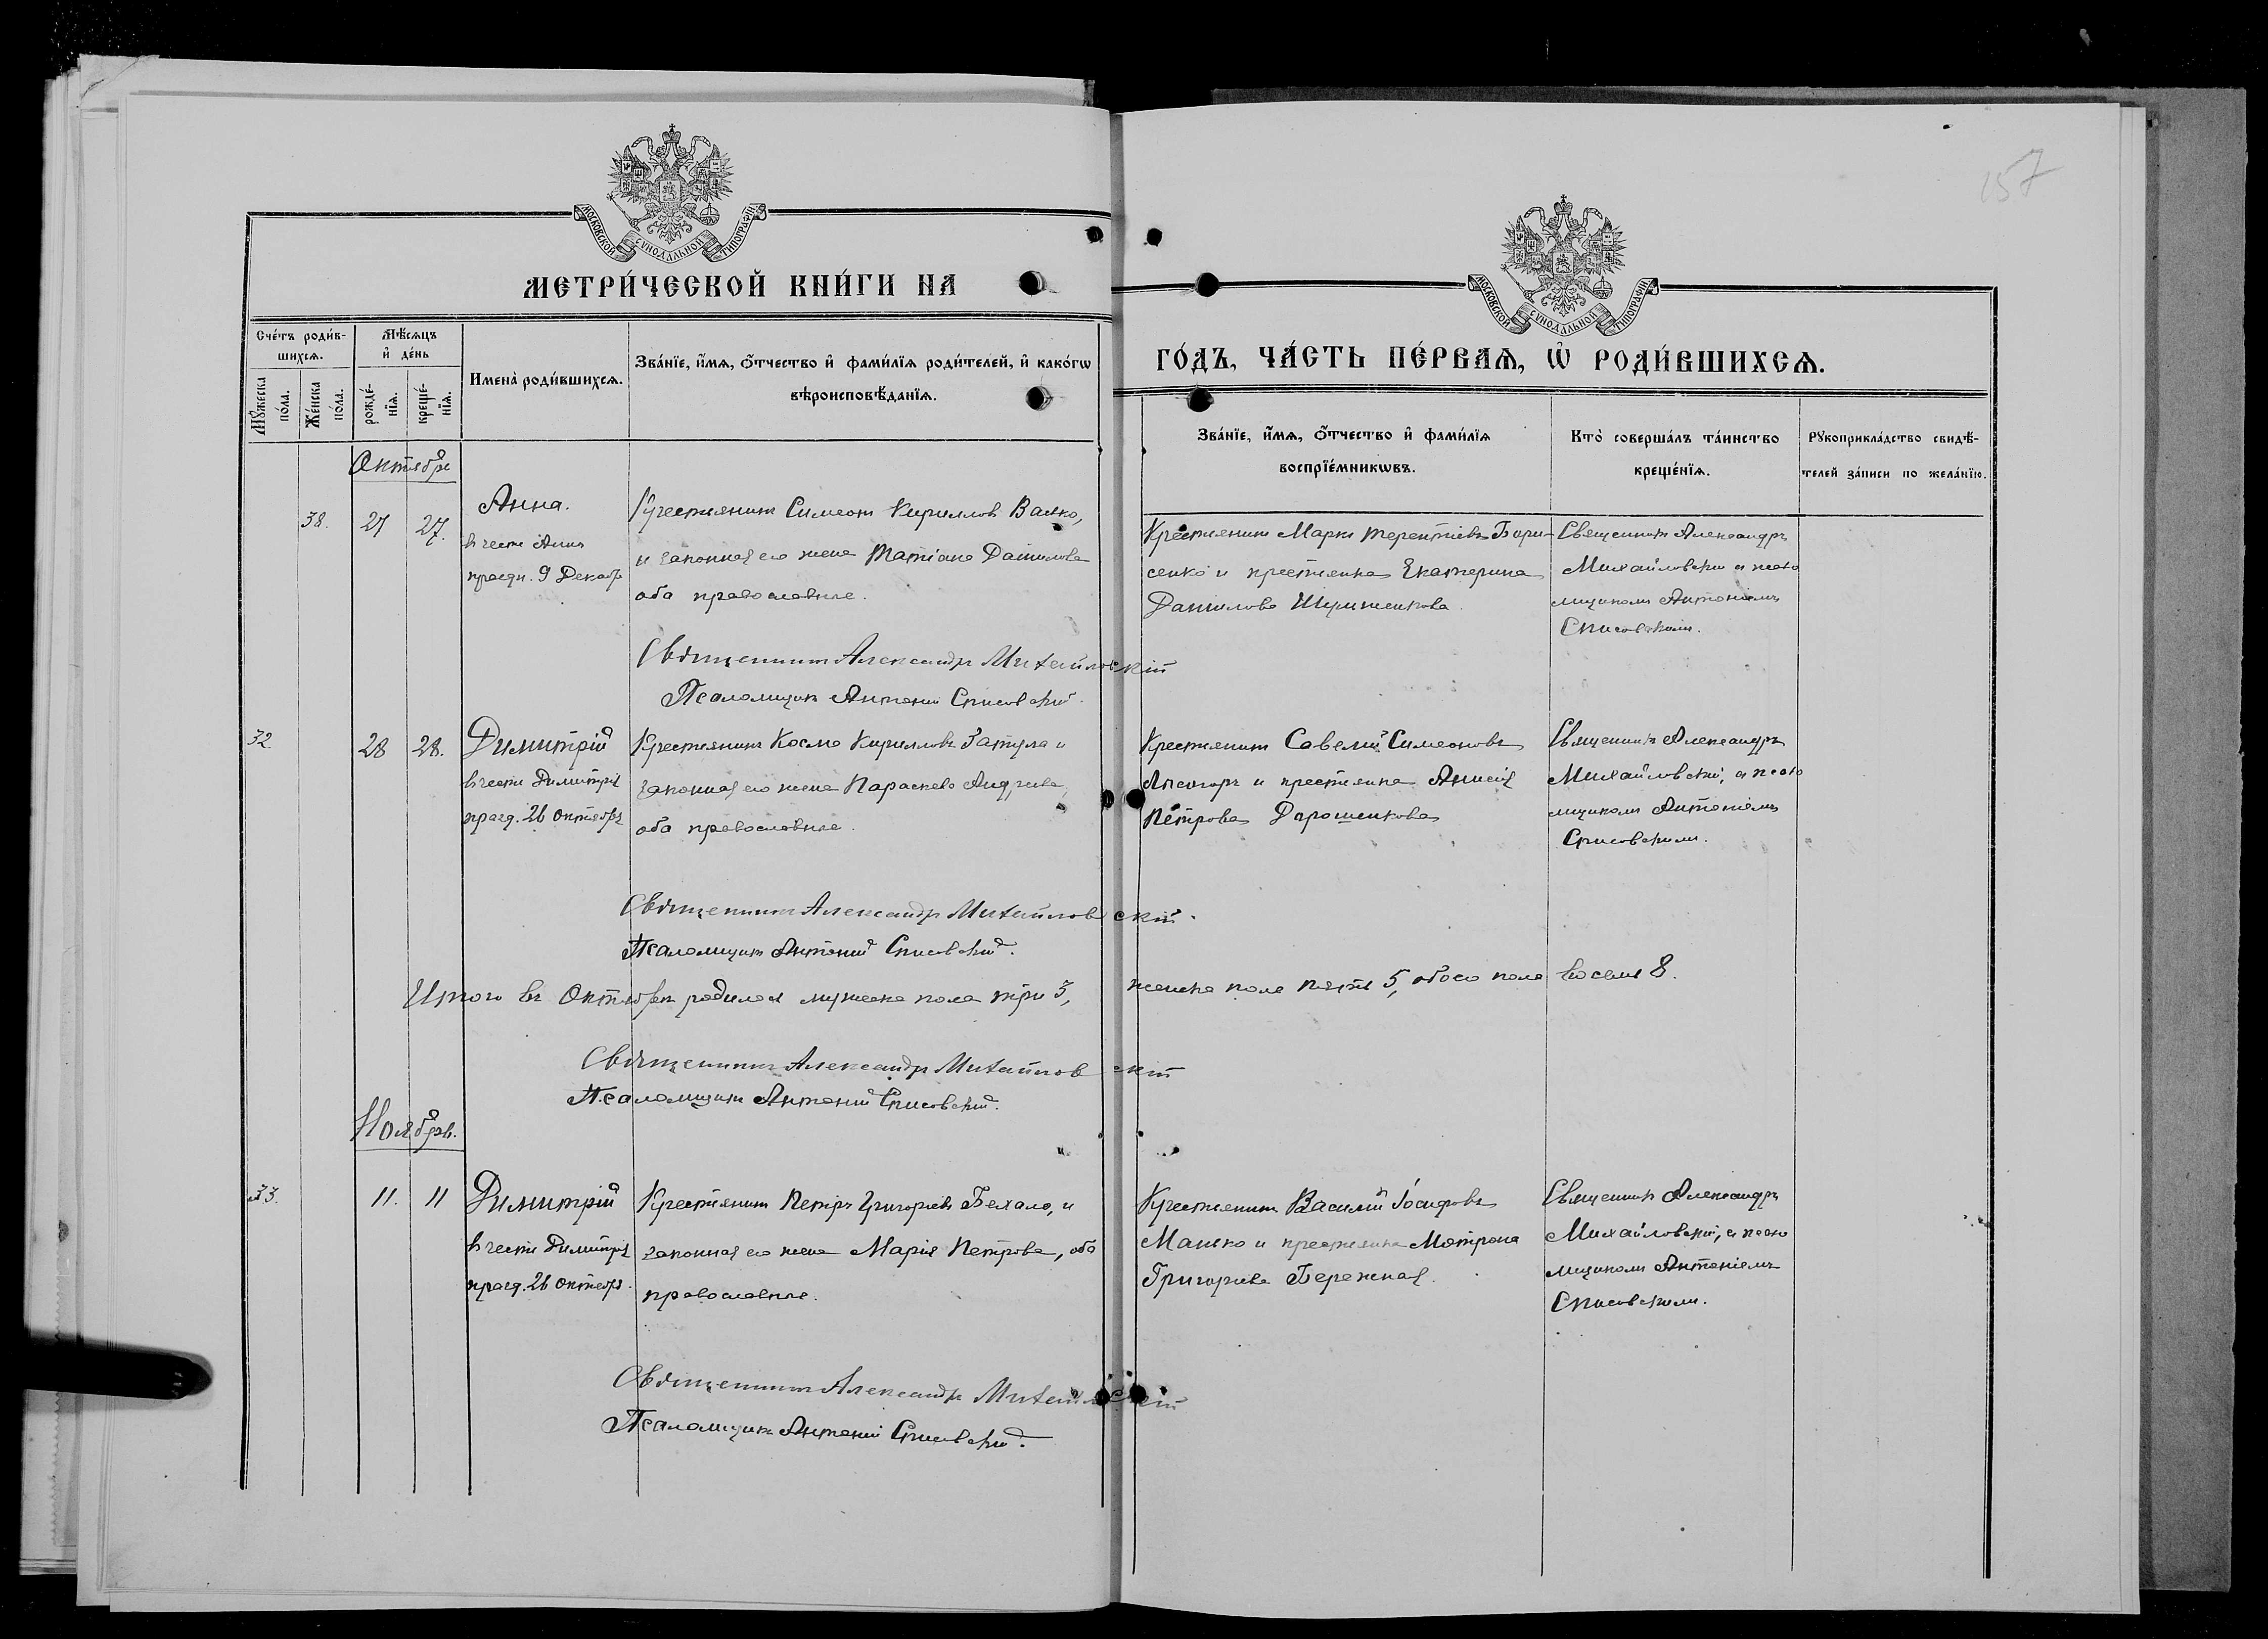 157
МОСКОВСКОЙ СѴНОДАЛЬНОЙ ТИПОГРАФІИ
МОСКОВСКОЙ СѴНОДАЛЬНОЙ ТИПОГРАФІИ
МЕТРИ́ЧЕСКОЙ КНИ́ГИ НА
ГО́ДЪ, ЧА́СТЬ ПЕ́РВАѦ, Ѡ҆ РОДИ́ВШИХСѦ.
Сче́тъ роди́в-
шихсѧ.
Мꙋ́жеска
по́ла.
Же́нска
по́ла.
Мѣ́сѧцъ
и҆ де́нь
рожде́-
нїѧ.
креще́-
нїѧ.
Имена̀ роди́вшихсѧ.
Зва́нїе, и҆́мѧ, ѻ҆́тчество и҆ фами́лїѧ роди́телей, и҆ како́гѡ
вѣроисповѣ́данїѧ.
Зва́нїе, и҆́мѧ, ѻ҆́тчество и҆ фами́лїѧ
воспрїе́мникѡвъ.
Кто̀ соверша́лъ та́инство
креще́нїѧ.
Рꙋкоприкла́дство свидѣ́-
телей за́писи по жела́нїю.
Октябрь
38.
27
27.
Анна.
в честь Анны
праздн. 9 Декабр
Крестьянинъ Симеонъ Кириллов Валко,
и законная его жена Татіана Данилова
оба православные.
Крестьянинъ Маркъ Терентіевъ Бори-
сенко и крестьянка Екатерина
Данилова
Священникъ Александръ
Михайловскій съ псало
мщикомъ Антоніемъ
Списовскимъ.
Священникъ Александръ Михайловскій
Псаломщикъ Антоній Списовскій.
32.
28
28.
Димитрій
в честь Димитрія
празд. 26 Октября
Крестьянинъ Косма Кирилловъ Затула и
законная его жена Параскева Андреева,
оба православные.
Крестьянинъ Савелій Симеоновъ
Лысогоръ и крестьянка Анисія
Петрова Дорошенкова
Священникъ Александръ
Михайловскій, съ псало
мщикомъ Антоніемъ
Списовскимъ.
Священникъ Александръ Михайловскій.
Псаломщикъ Антоній Списовскій.
Итого въ Октябрѣ родилося мужеска пола три 3, женска пола пять 5, обоего пола восемь 8.
Священникъ Александръ Михайловскій
Псаломщикъ Антоній Списовскій.
Ноябрь.
33.
11.
11
Димитрій
в честь Димитрія
празд. 26 Октябр.
Крестьянинъ Петръ Григоріевъ Бехало, и
законная его жена Марія Петрова, оба
православные.
Крестьянинъ Василій Іосифовъ
Манько и крестьянка Матрона
Григорьева Бережная.
Священникъ Александръ
Михайловскій, съ псало
мщикомъ Антоніемъ
Списовскимъ.
Священникъ Александръ Михайловскій
Псаломщикъ Антоній Списовскій.